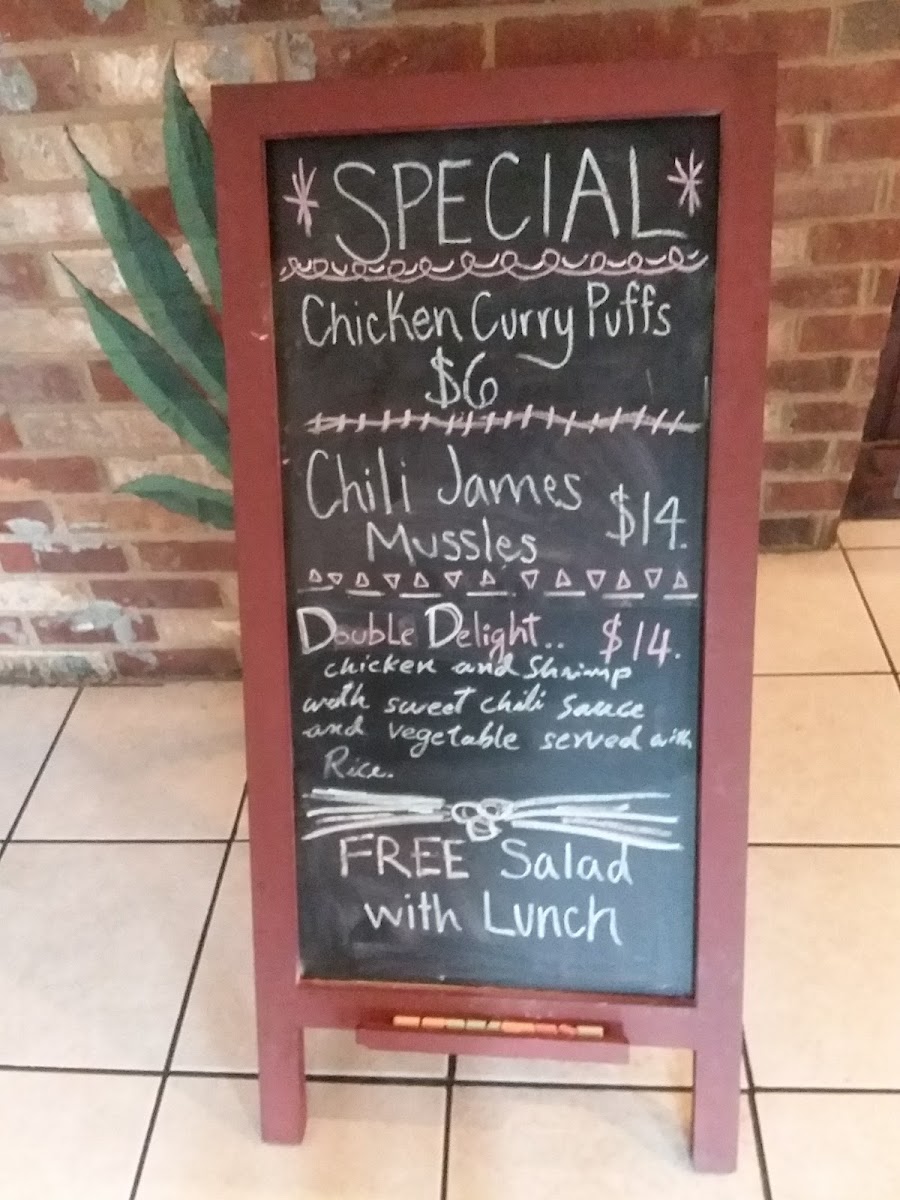 * SPECIAL *
Chicken Curry Puffs
$6
Chili James $14.
Mussles
Double Delight.. $14.
chicken and shrimp
with sweet chili sauce
and vegetable served with
Rice.
FREE Salad
with Lunch